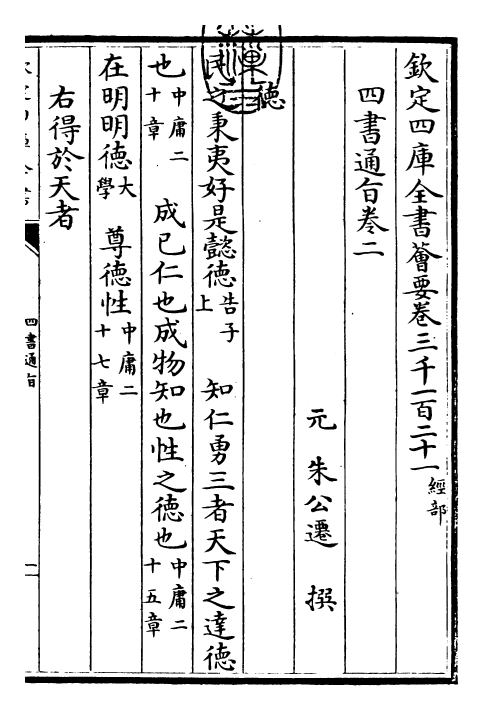 欽定四庫全書薈要卷三千一百二十一 經部
四書通旨卷二
元 朱公遷 撰
德
民之秉夷好是懿德告子上 知仁勇三者天下之達德
也中庸二十章 成已仁也成物知也性之德也中庸二十五章
在明明德大學 尊德性中庸二十七章
右得於天者
四書通旨